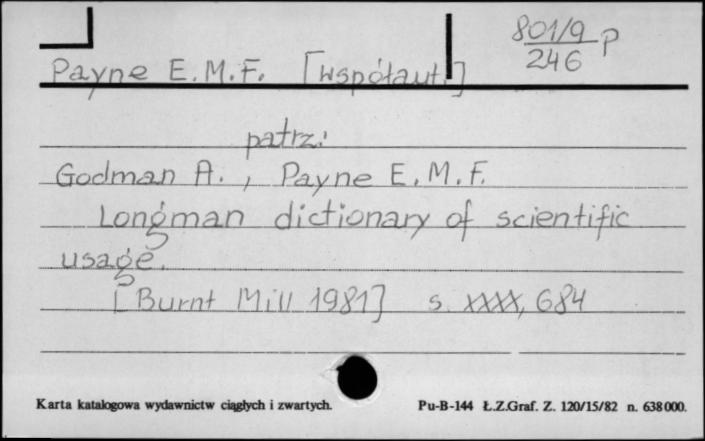 801/9 P
246
Payne E.M.F. [współaut.]
patrz:
Godman A., Payne E.M.F.
Longman dictionary of scientific
usage.
[Burnt Mill 1981] s. XXXX, 684
Karta katalogowa wydawnictw ciągłych i zwartych. Pu-B-144 Ł.Z.Graf. Z. 120/15/82 n. 638000.